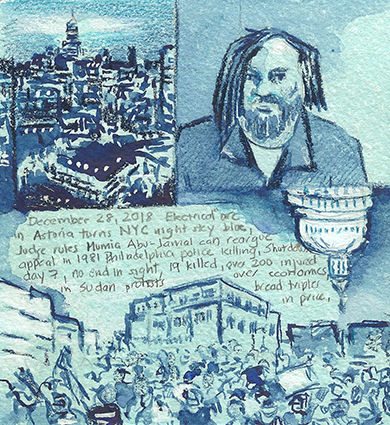 December 28, 2018 Electrical arc
in Astoria turns NYC night sky blue,
Judge rules Mumia Abu-Jamal can reargue
appeal in 1981 Philadelphia police killing, Shutdown
day 7, no end in sight, 19 killed, over 200 injured
in Sudan protests over economics
bread triples
in price.